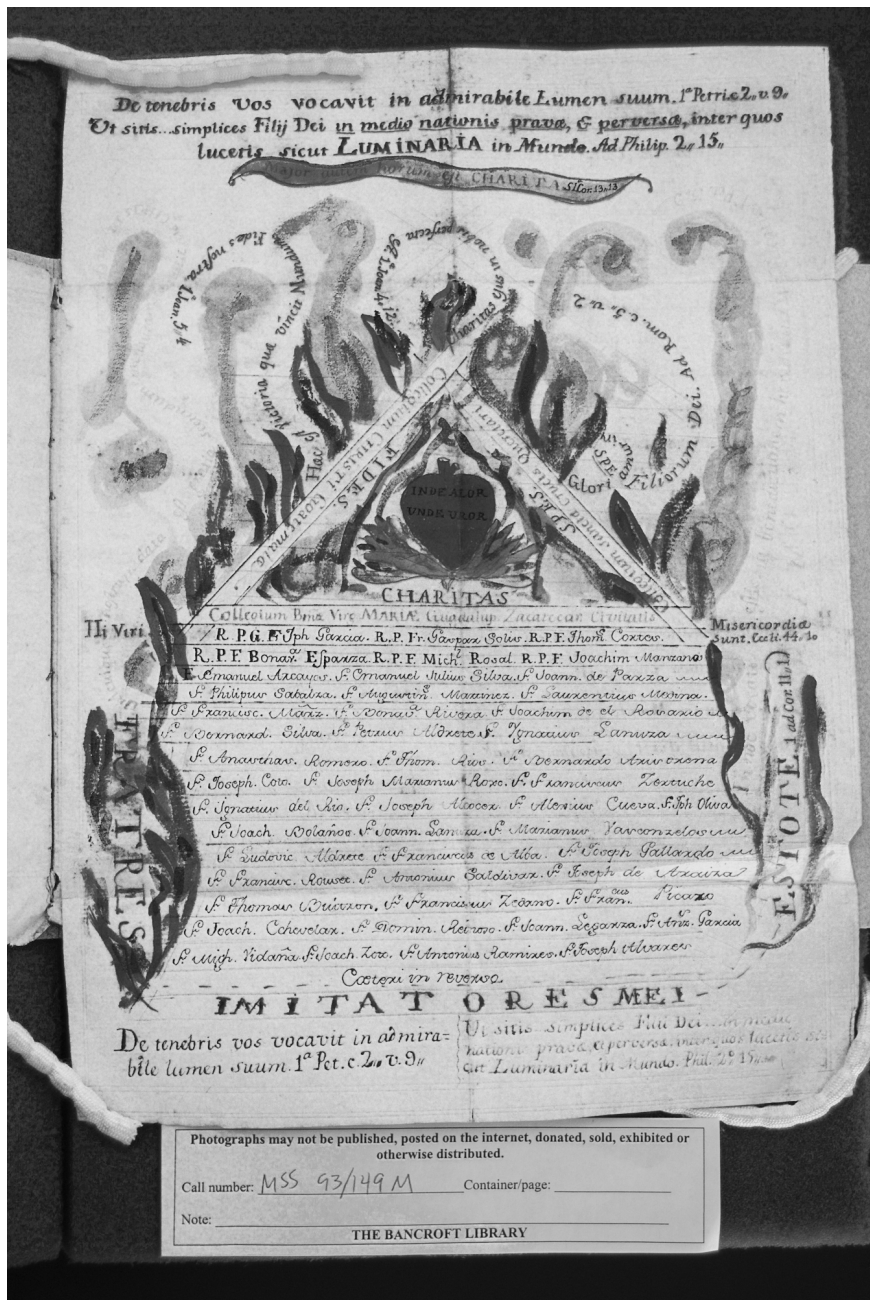 De tenebris vos vocavit in admirabile Lumen suum. 1ª Petri.c.2.,v.9.
Ut sitis...simplices Filij Dei in medio nationis pravæ, & perversæ, inter quos
lucetis sicut LUMINARIA in Mundo. Ad Philip. 2,, 15,,
Major autem horum est CHARITAS. 1. Cor. 13,, 13
Hæc est victoria quæ vincit Mundum Fides nostra. 1. Joan. 5,, 4
Charitas ejus in nobis perfecta est. 1. Joan. 4,, 12
Gloriamur in SPE Filiorum Dei. Ad Rom. c. 5. v. 2
Collegium Christi Goatemalæ
Collegium Sanctæ Crucis
FIDES.
SPES.
INDE ALOR
UNDE UROR
CHARITAS
Collegium Bmæ Virg. MARIÆ Guadalup. Zacatecan. Civitatis
Hi Viri
Misericordiæ
sunt. Eccli. 44.,10
R. P. G. F. Jph Garcia. R. P. Fr. Gaspar Solis. R. P. F. Thom. Cortes.
R. P. F. Bonavʳ. Esparza. R. P. F. Mich. Rosal. R. P. F. Joachim Manzano
F. Emanuel Arcayos. F. Emanuel Julius Silva. F. Joann. de Parza
Fr. Philipus Sabalza. Fr. Augustin. Martinez. Fr. Laurentius Medina.
Fr. Francisc. Martz. Fr. Bonavʳ. Rivera Fr. Joachim de el Rosario
Fr. Bernard. Silva. Fr. Petrus Aldrete Fr. Ignatius Lanuza
Fr. Romero. Fr. Thom. Rivs. Fr. Bernardo
Fr. Joseph. Coto. Fr. Joseph Marianus Roxo. Fr. Franciscus Zertuche
Fr. Ignatius del Rio. Fr. Joseph Alcocer. Fr. Alexius Cueva. F. Jph Oliva
Fr. Joach. Bolaños. Fr. Joann. Lanuza. Fr. Marianus Vasconzelos
Fr. Ludovic. Aldrete Fr. Franciscus de Alba. Fr. Joseph Gallardo
Fr. Francisc. Rouset. Fr. Antonius Saldivar. Fr. Joseph de Araiza
Fr. Thomas Fr. Franciscus Fr. Fran.cus Picazo
Fr. Joach. Fr. Fermin. Reinoso. Fr. Joann. Segarza. Fr. Antº. Garcia
Fr. Mich. Vidaña. Fr. Joach. Zoto. Fr. Antonius Ramires. Fr. Joseph Alvares
Cæteri in reverso.
FRATRES
ESTOTE. 1. ad Cor. 11.,1
IMITATORES MEI
De tenebris vos vocavit in admira=
bile lumen suum. 1ª Pet. c. 2,, v. 9,,
Ut sitis simplices Filii Dei...in medio
nationis pravæ, et perversæ, inter quos lucetis si
cut Luminaria in Mundo. Phil. 2º 15.
Photographs may not be published, posted on the internet, donated, sold, exhibited or
otherwise distributed.
Call number: MSS 93/149 M Container/page:
Note:
THE BANCROFT LIBRARY